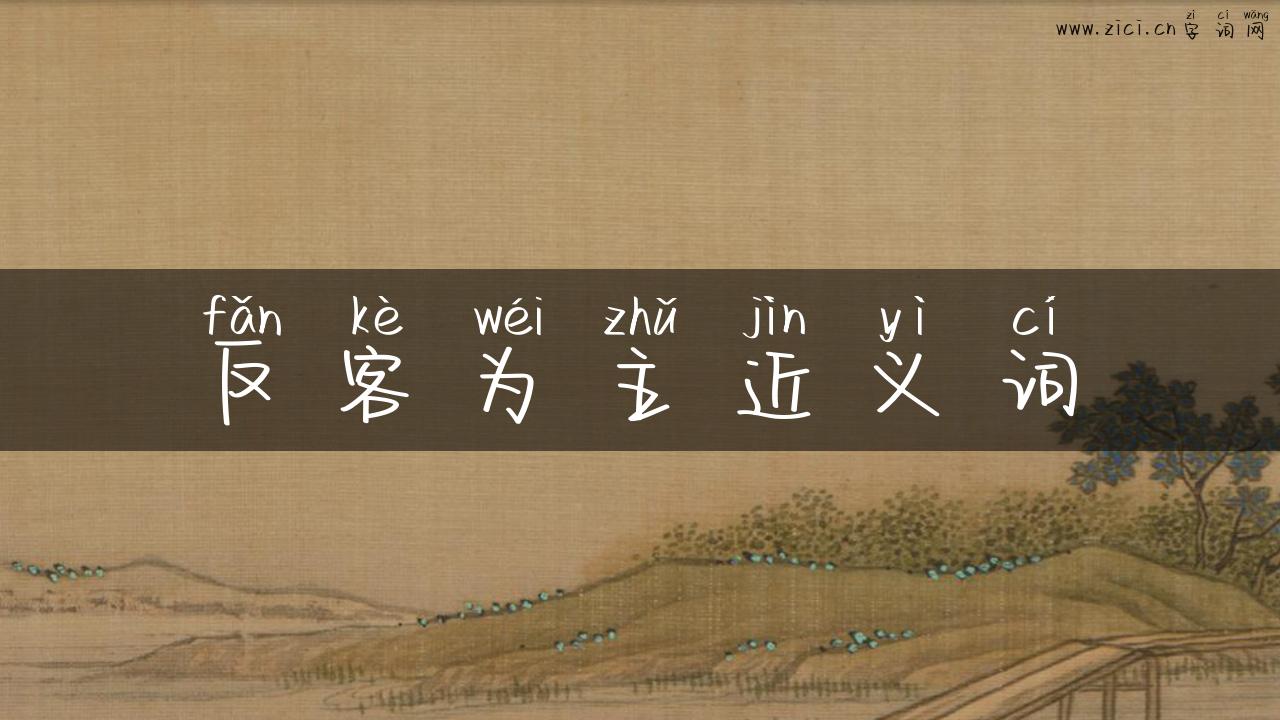 zì cí wǎng
www.zici.cn字词网
fǎn kè wéi zhǔ jìn yì cí
反客为主近义词